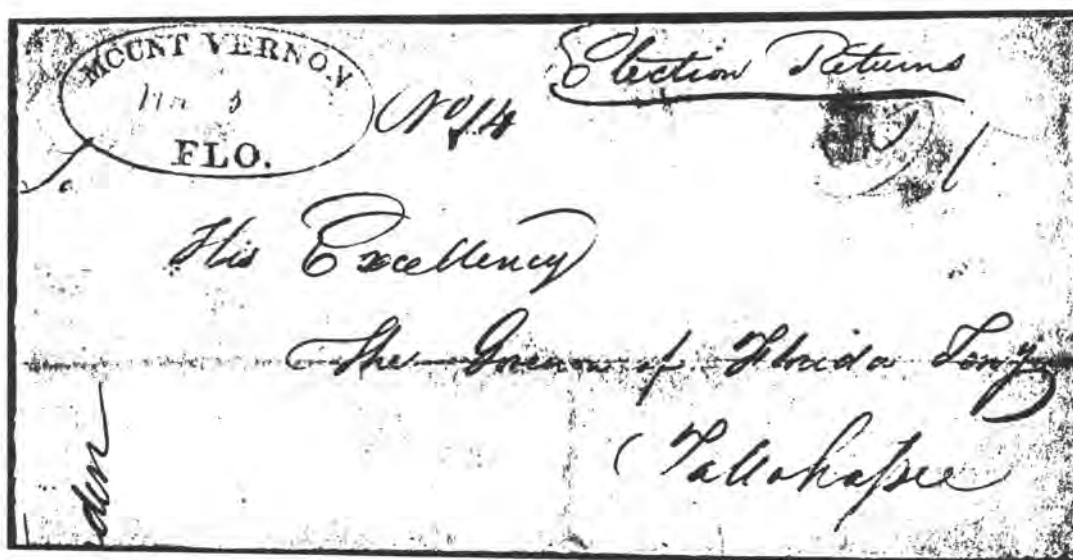 MOUNT VERNON
FLO.
No 14
Election Returns
His Excellency
The Governor of Florida Terry
Tallahassee